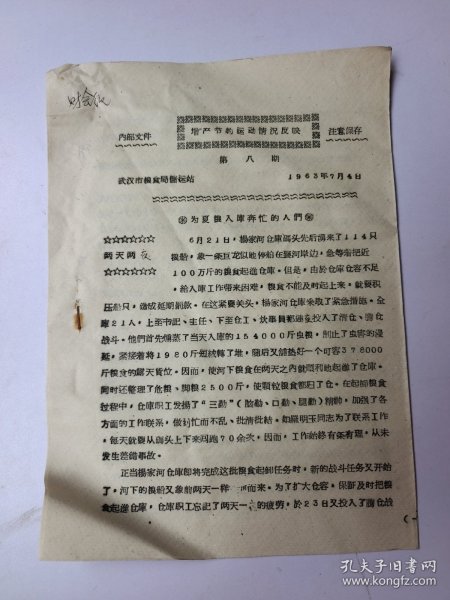 内部文件
增产节约运动情况反映
注意保存
第八期
武汉市粮食局储运站
1963年7月4日
为夏粮入库奔忙的人們
两天两夜
6月21日，楊家河仓庫碼头先后湧来了114只
粮船，象一条巨龙似地停泊在漢河岸边，急等着把近
100万斤的粮食起進仓庫。但是，由於仓庫仓容不足，
給入庫工作带来困难，粮食不能及时起上来，就要积
压船只，造成延期罰款。在这紧要关头，楊家河仓庫采取了紧急措施。全
庫21人，上至书記、主任、下至仓工、炊事員都通夜投入了清仓、騰仓
战斗。他們首先熏蒸了当天入庫的154000斤虫粮，制止了虫害的浸
延，紧接着将1980斤短线轉了堆，随后又舖垫好一个可容378000
斤粮食的露天货位，因而，使河下粮食在两天之内就順利地起進了仓庫。
同时还整理了危粮、脚粮2500斤，使顆粒粮食都归了仓。在起卸粮食
过程中，仓庫职工发揚了“三勤”（脑勤、口勤、腿勤）精神，加强了各
方面的工作联系，做到忙而不乱、批清批結。如嚴明玉同志为了联系工作，
每天就要从碼头上下来回跑70余次，因而，工作始終有条有理，从未
发生差錯事故。
正当楊家河仓庫即将完成这批粮食起卸任务时，新的战斗任务又开始
了，河下的粮船又象前两天一样 而来。为了扩大仓容，保証及时把粮
食起進仓庫，仓庫职工忘記了两天一 的疲劳，於23日又投入了騰仓战
孔夫子旧书网
www.kongfz.com